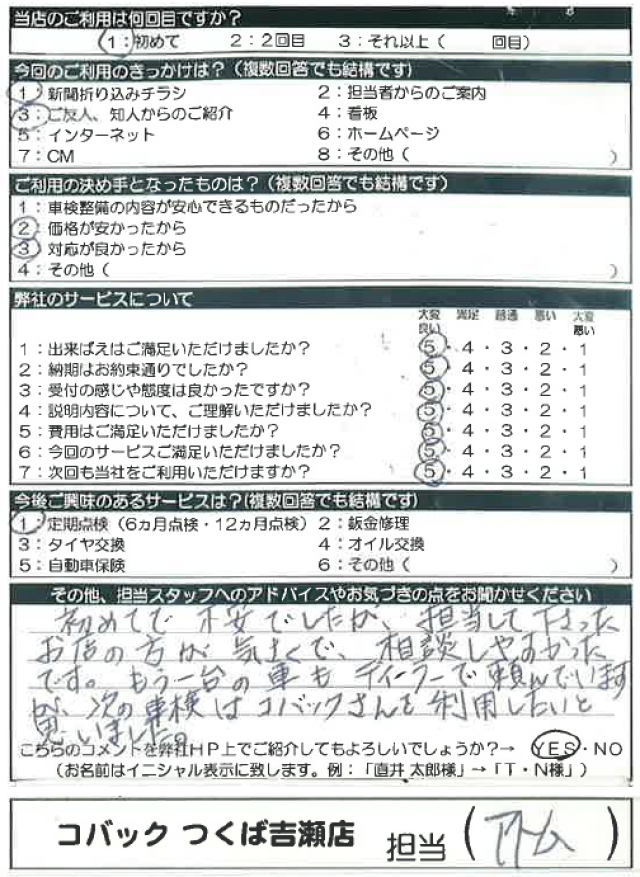 当店のご利用は何回目ですか?
1:初めて 2:2回目 3:それ以上( 回目)
今回のご利用のきっかけは?(複数回答でも結構です)
1:新聞折り込みチラシ 2:担当者からのご案内
3:ご友人、知人からのご紹介 4:看板
5:インターネット 6:ホームページ
7:CM 8:その他( )
ご利用の決め手となったものは?(複数回答でも結構です)
1:車検整備の内容が安心できるものだったから
2:価格が安かったから
3:対応が良かったから
4:その他( )
弊社のサービスについて
大変良い 満足 普通 悪い 大変悪い
1:出来ばえはご満足いただけましたか? 5・4・3・2・1
2:納期はお約束通りでしたか? 5・4・3・2・1
3:受付の感じや態度は良かったですか? 5・4・3・2・1
4:説明内容について、ご理解いただけましたか? 5・4・3・2・1
5:費用はご満足いただけましたか? 5・4・3・2・1
6:今回のサービスご満足いただけましたか? 5・4・3・2・1
7:次回も当社をご利用いただけますか? 5・4・3・2・1
今後ご興味のあるサービスは?(複数回答でも結構です)
1:定期点検(6ヵ月点検・12ヵ月点検) 2:鈑金修理
3:タイヤ交換 4:オイル交換
5:自動車保険 6:その他( )
その他、担当スタッフへのアドバイスやお気づきの点をお聞かせください
初めてで不安でしたが、担当して下さった
お店の方が気さくで、相談しやすかった
です。もう一台の車もディーラーで頼んでいます
が、次の車検はコバックさんを利用したいと
思いました。
こちらのコメントを弊社HP上でご紹介してもよろしいでしょうか?→ YES・NO
(お名前はイニシャル表示に致します。例:「直井 太郎様」→「T・N様」)
コバック つくば吉瀬店 担当( )